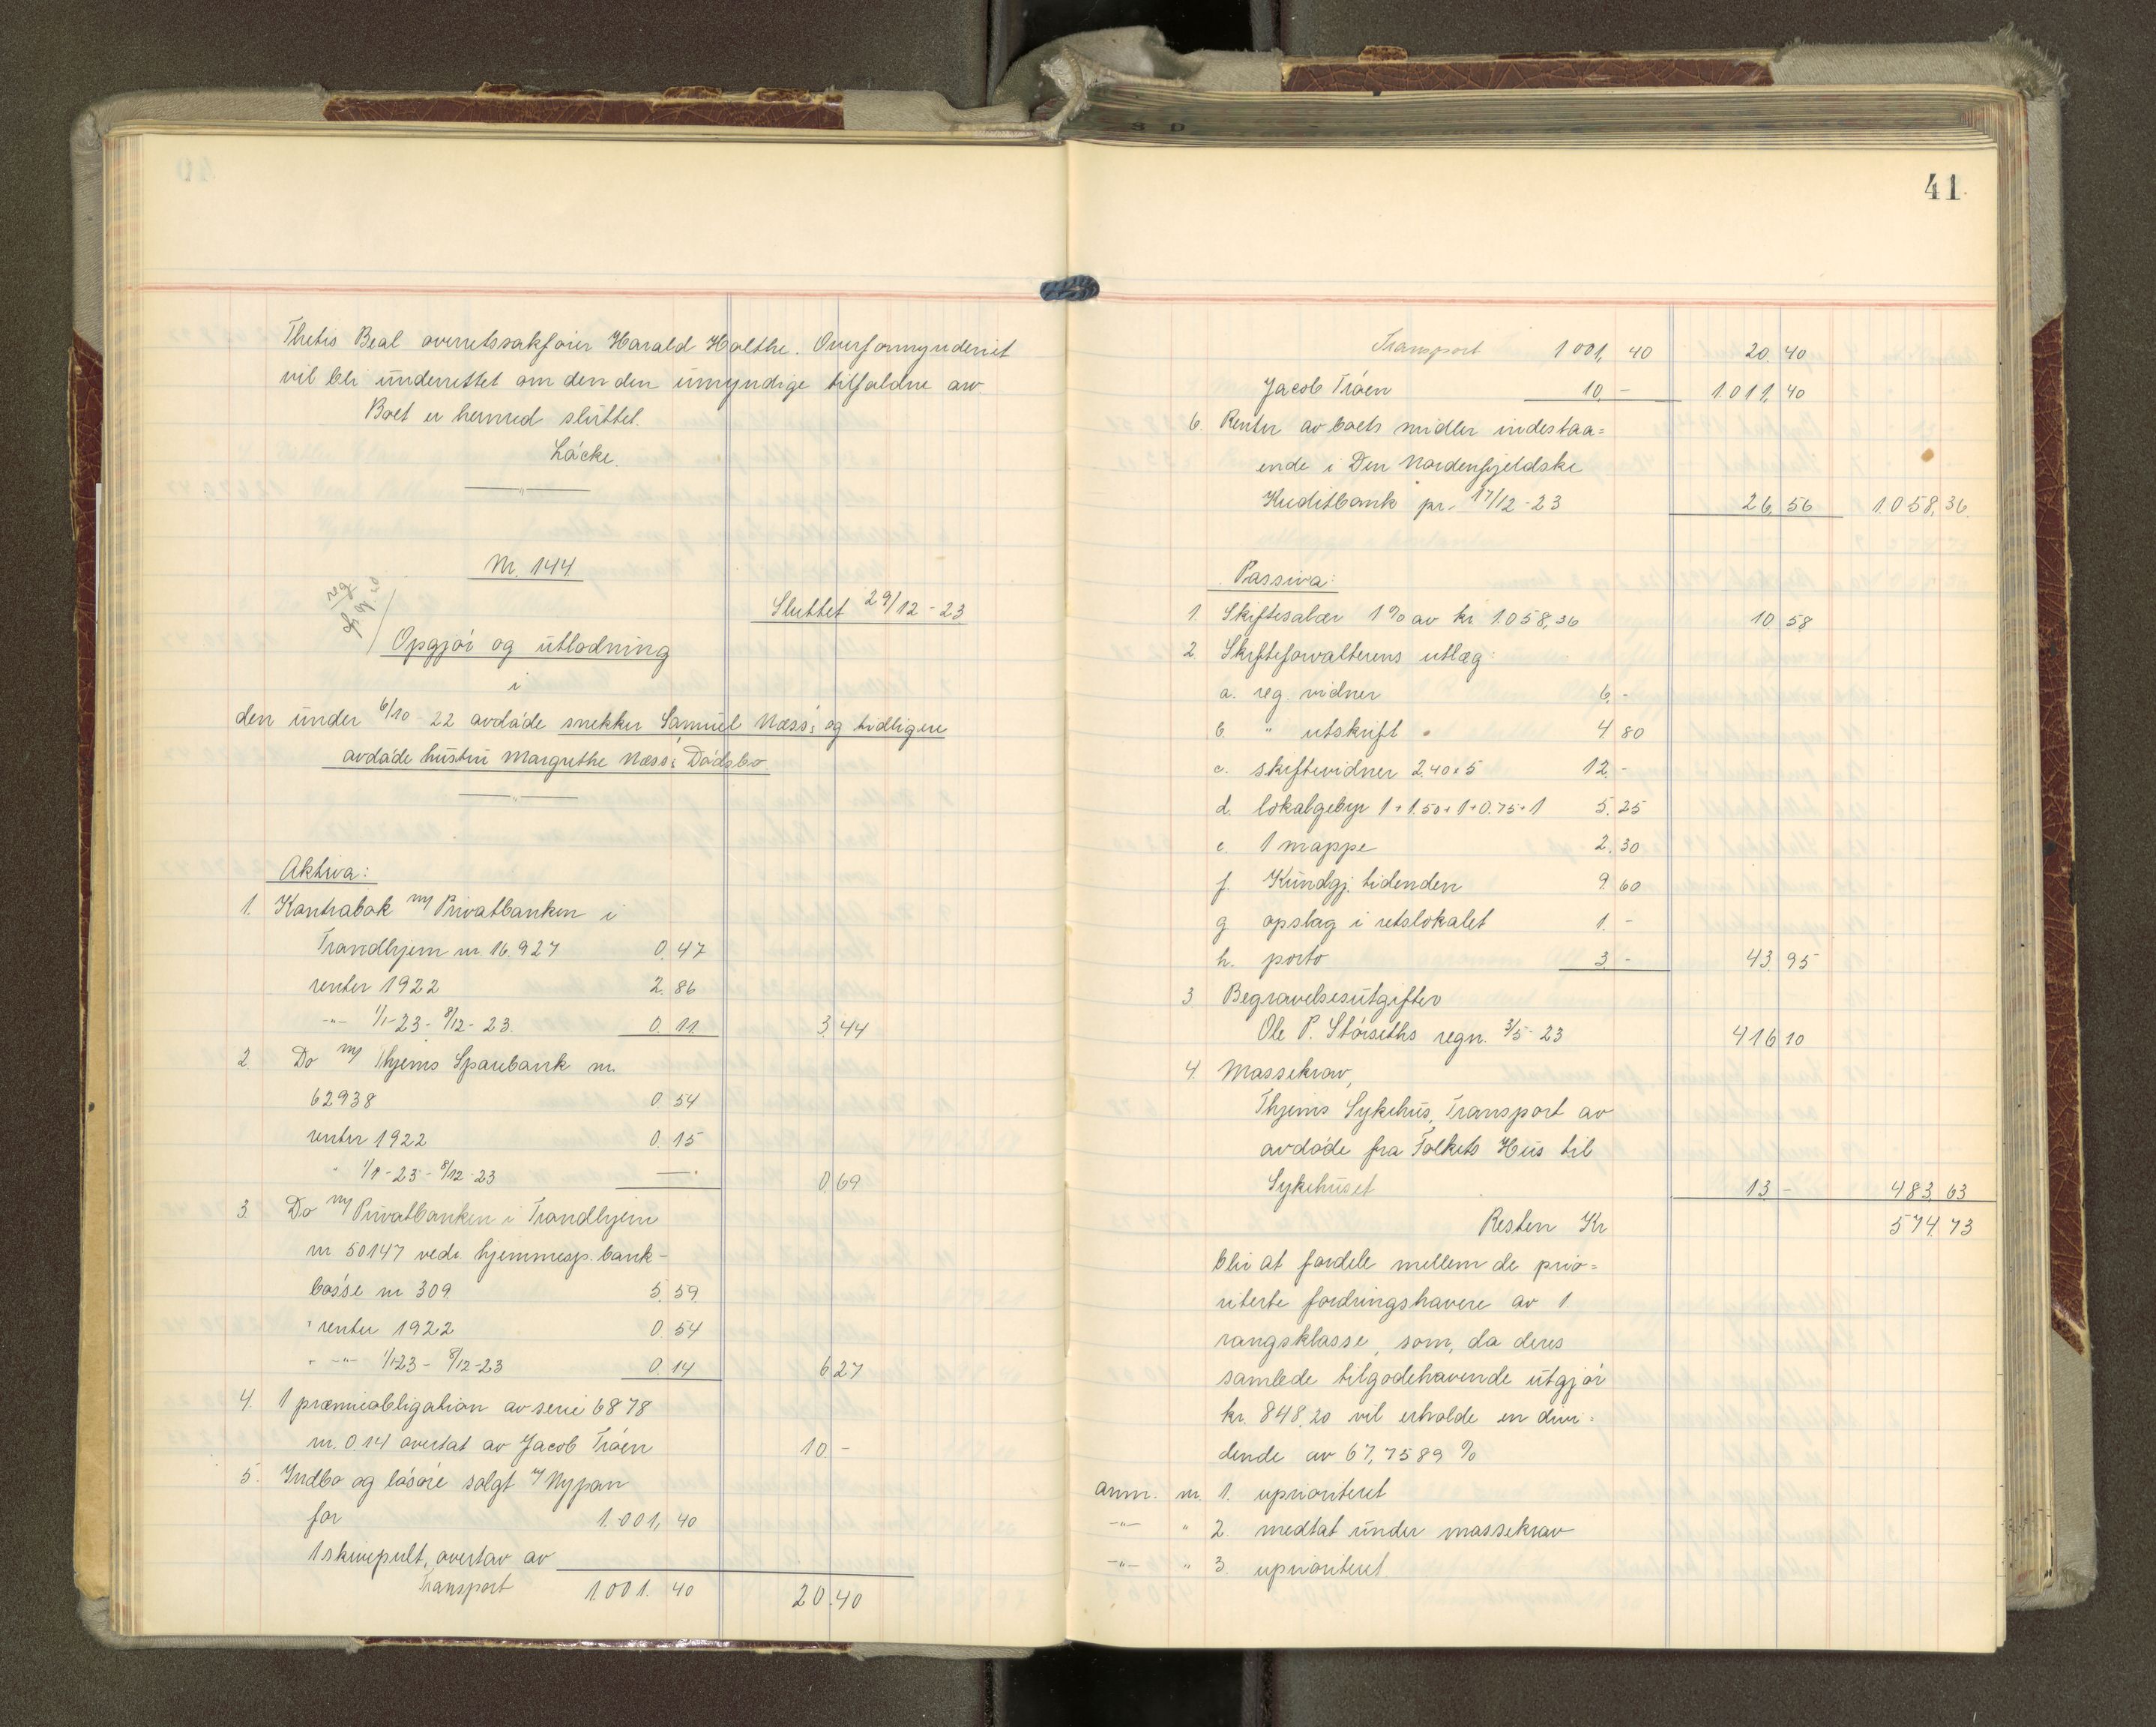 Thetis Beal overretssakfører Harald Holthe. Overformynderiet
vil bli underrettet om den den umyndige tilfaldne arv.
Boet er hermed sluttet.
Läcke.
Nr. 144
Sluttet 29/12-23
Opgjør og utlodning
i
den under 6/10-22 avdøde snekker Samuel Næss' og tidligere
avdøde hustru Margrethe Næss' Dødsbo.
Aktiva:
1. Kontrabok m/ Privatbanken i
Trondhjem nr. 16.927 0.47
renter 1922 2.86
-"- 1/1-23 - 8/12-23. 0.11 3.44
2 Do m/ Thjems Sparebank nr.
62938 0.54
renter 1922 0.15
" 1/1-23 - 8/12-23 — 0.69
3. Do m/ Privatbanken i Trondhjem
nr 50147 vedr. hjemmesp. bank-
bøsse nr 309. 5.59
" renter 1922 0.54
" -"- 1/1-23 - 8/12-23 0.14 6.27
4. 1 præmieobligation av serie 6878
nr. 0.14 overtat av Jacob Trøen 10.-
5. Indbo og løsøre solgt v/ Nypan
for 1.001,40
1 skrivepult, overtav av
Transport 1.001.40 20.40
41
Transport 1001,40 20.40
Jacob Trøen 10.- 1.011,40
6. Renter av boets midler indestaa=
ende i Den Nordenfjeldske
Kreditbank pr. 17/12-23 26,56 1.058,36.
Passiva:
1. Skiftesalær 1% av kr 1.058,36 10.58
2. Skifteforvalterens utlæg:
a. reg. vidner 6.-
b " utskrift 4.80
c. skiftevidner 2.40 x 5 12.-
d. lokalgebyr 1+1.50+1+0.75+1 5.25
e. 1 mappe 2.30
f. Kundgj. tidenden 9.60
g opslag i retslokalet 1.-
h. porto 3.- 43.95
3 Begravelsesutgifter
Ole P. Størseths regn. 3/5-23 416.10
4. Massekrav,
Thjems Sykehus, Transport av
avdøde fra Folkets Hus til
Sykehuset 13.- 483.63
Resten Kr 574.73
blir at fordele mellem de prio=
riterte fordringshavere av 1.
rangsklasse, som, da deres
samlede tilgodehavende utgjør
kr. 848.20 vil erholde en divi=
dende av 67,7589 %
anm. nr. 1. uprioriteret
-"- " 2 medtat under massekrav
-"- " 3. uprioriteret.